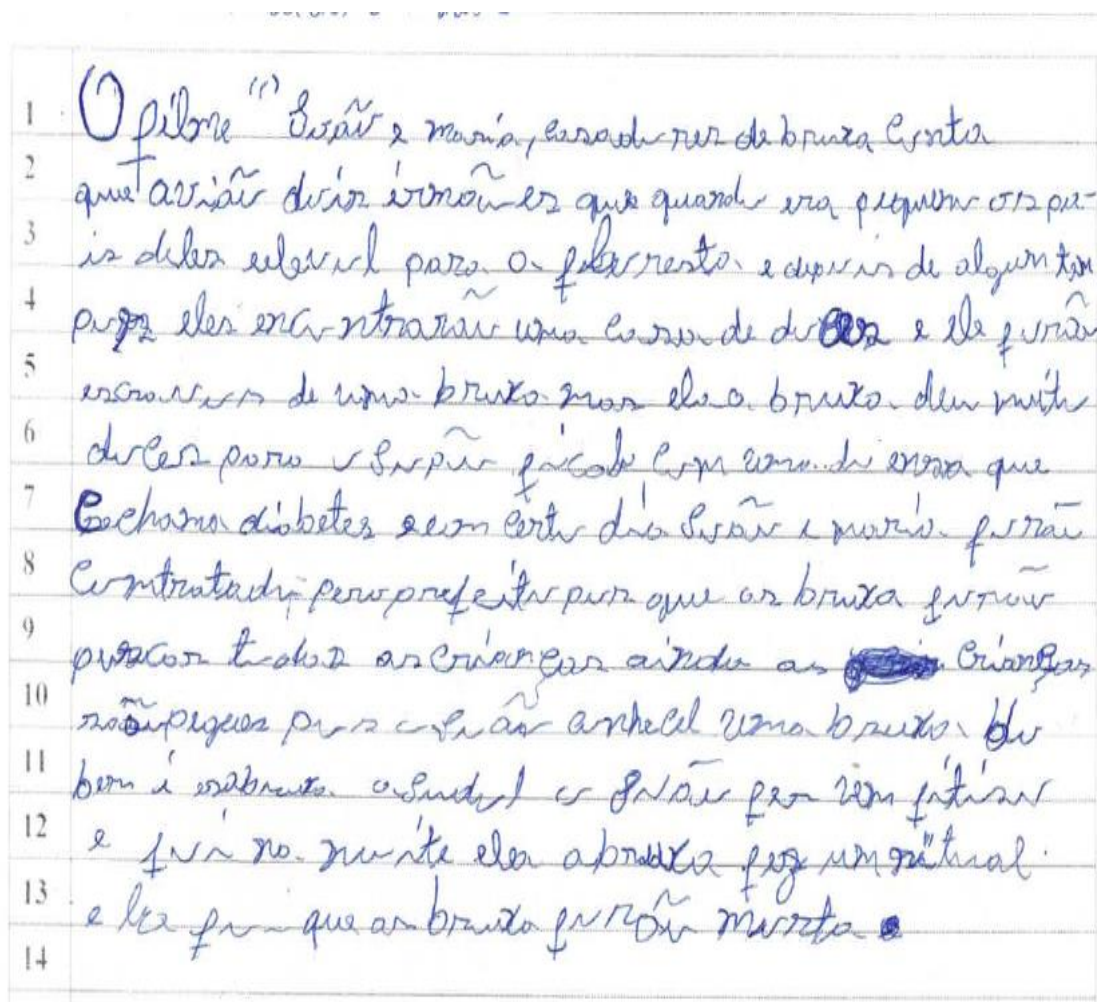 O filme "João e maria, casadores de bruxa conta
que avião dois irmãoes que quando era pequeno os pa-
is deles elevol para a floresta e depois de algum tem
pos eles encontrarão uma casa de doces e ele forão
escravos de uma bruxa mas ela a bruxa deu muito
doces para o João ficado com uma doensa que
chama diabetes e em certo dia João e maria forão
contratado pero prefeito pos que as bruxa forão
pascar todas as crianças ainda as crianças
são pegas pos o João conhecel uma bruxa do
bem i esabruxa asudol o João fes um fitiso
e foi no noite ela abruxa fez um ritual.
e que as bruxa forão morta